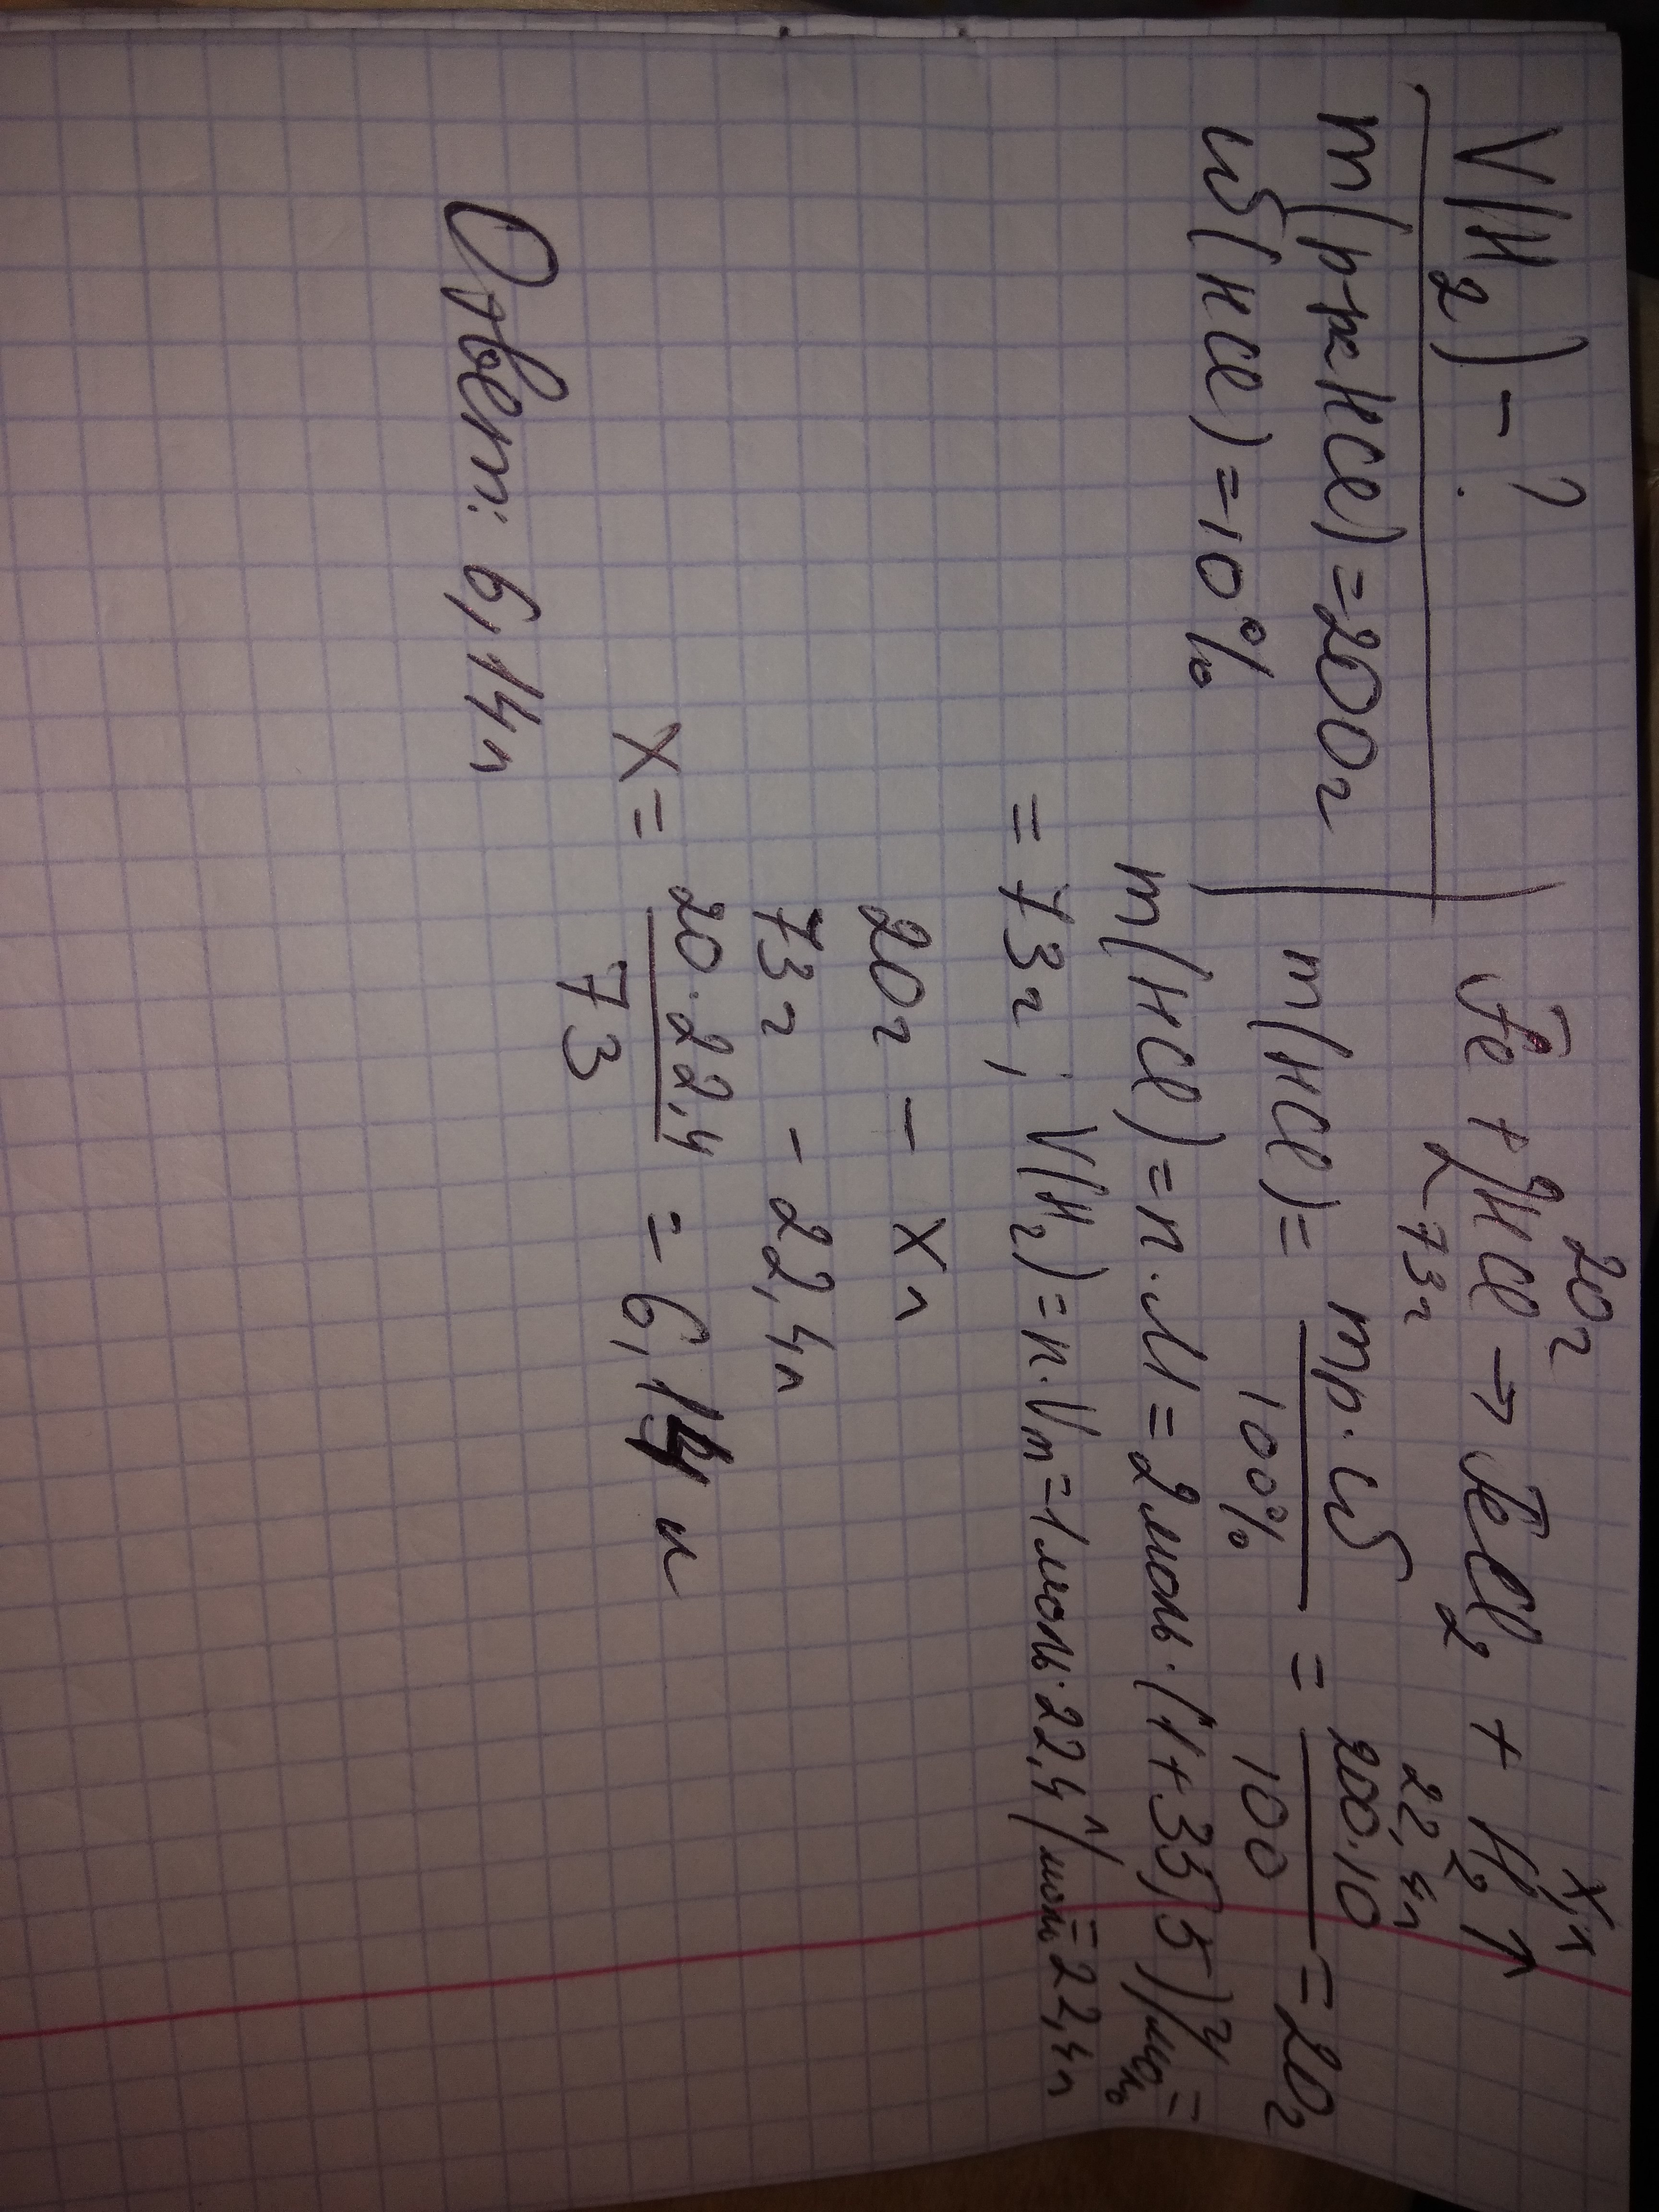 V(H₂) - ?
m(р-ра HCl) = 200г
ω(HCl) = 10%
20г X л
Fe + 2HCl → FeCl₂ + H₂↑
73г 22,4л
m(HCl) = mр·ω / 100% = 200·10 / 100 = 20г
m(HCl) = n·M = 2моль·(1+35,5)г/моль =
= 73г; V(H₂) = n·Vm = 1моль·22,4л/моль = 22,4л
20г - X л
73г - 22,4л
X = 20·22,4 / 73 = 6,14 л
Ответ: 6,14л